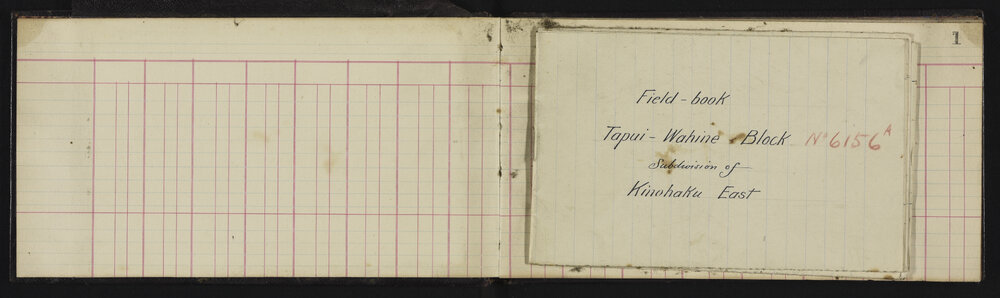 1
Field - book
Tapui - Wahine - Block No 6156A
Subdivision of
Kinohaku East